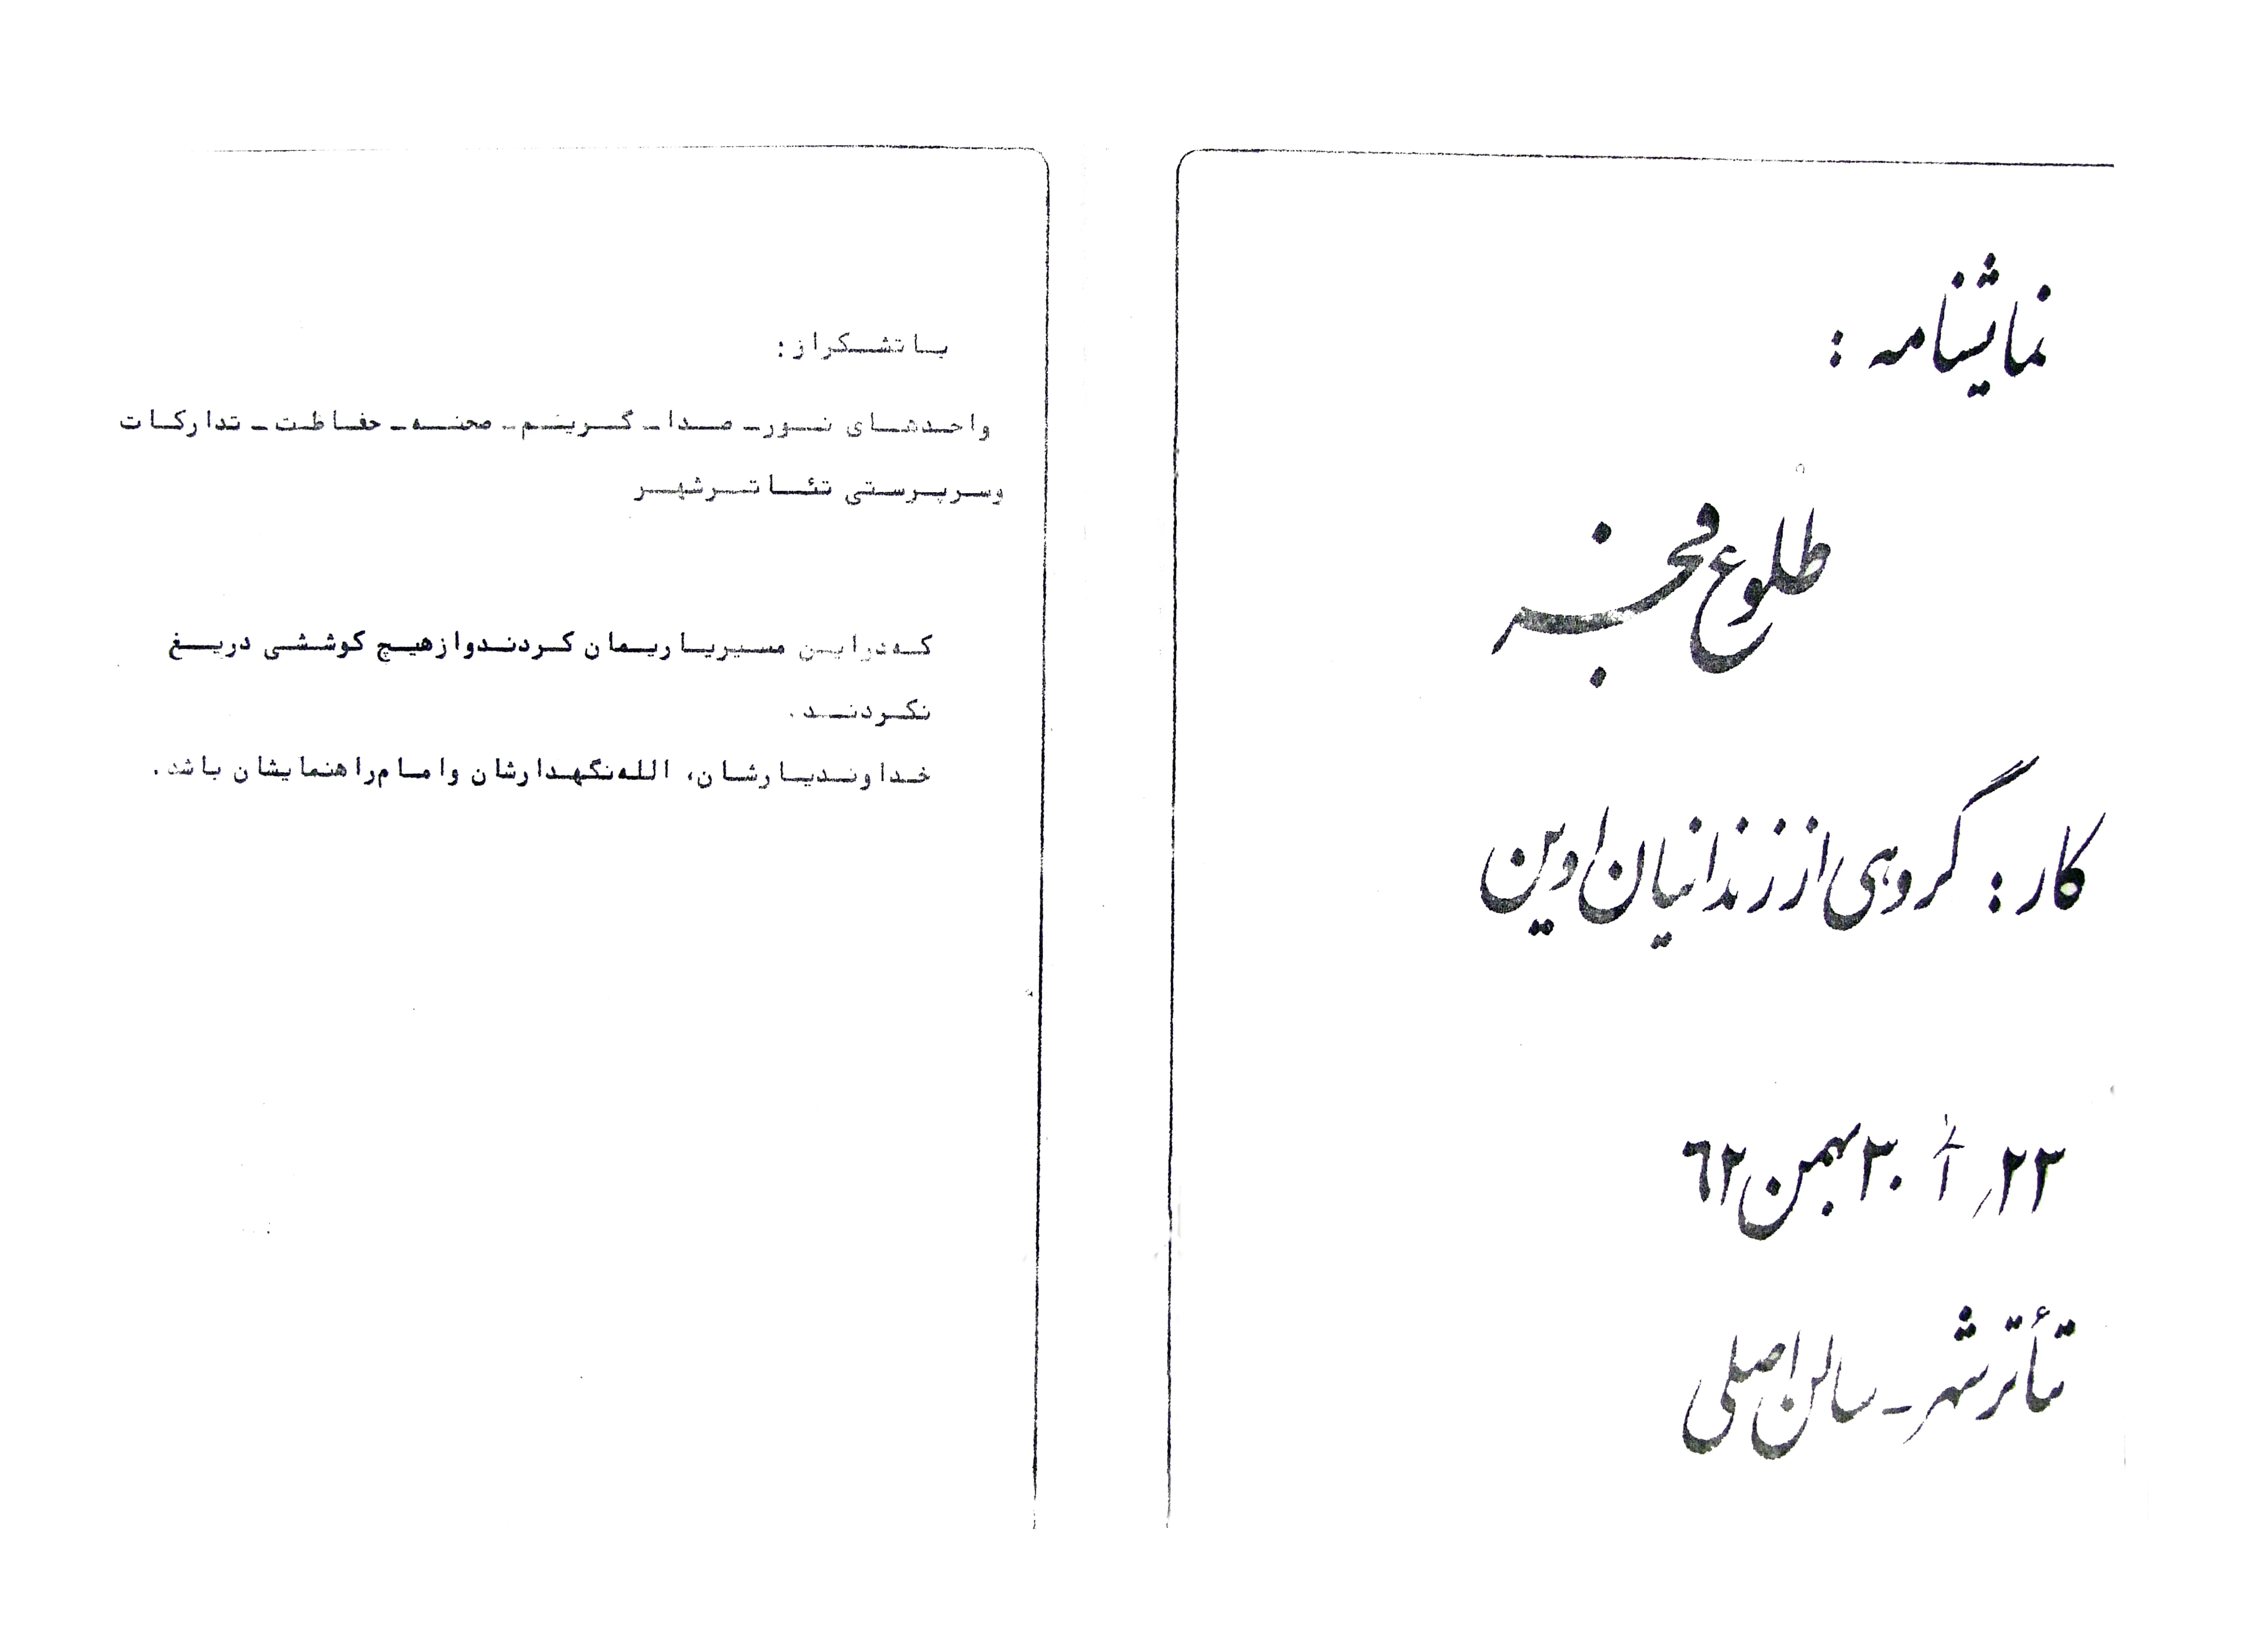 نمایشنامه :
طلوع فجر
کار : گروهی از زندانیان اوین
۲۳ الی ۳۰ بهمن ۶۲
تأترشهر ـ سالن اصلی
با تشکر از :
واحدهای نور ـ صدا ـ گریم ـ صحنه ـ حفاظت ـ تدارکات
وسرپرستی تئاترشهر
که در این مسیر یاریمان کردند و از هیچ کوششی دریغ
نکردند .
خداوند یارشان، الله نگهدارشان و امام راهنمایشان باشد .